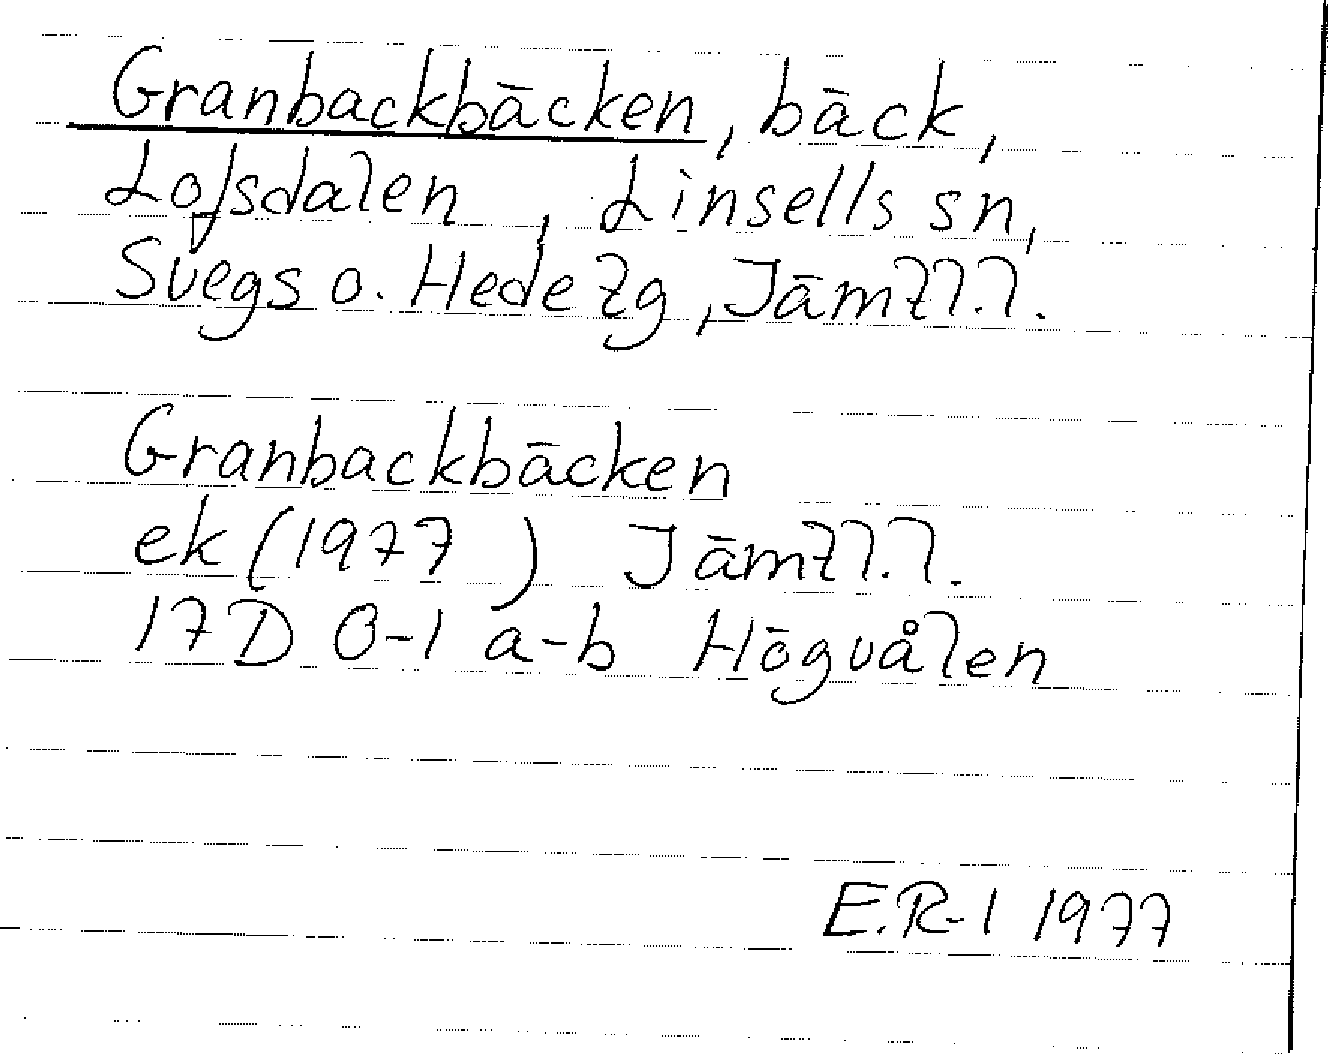 Granbackbäcken, bäck,
Lofsdalen, Linsells sn,
Svegs o. Hede tg, Jämtl.l.
Granbackbäcken
ek (1977) Jämtl.l.
17D 0-1 a-b Högvålen
E.R-l 1977